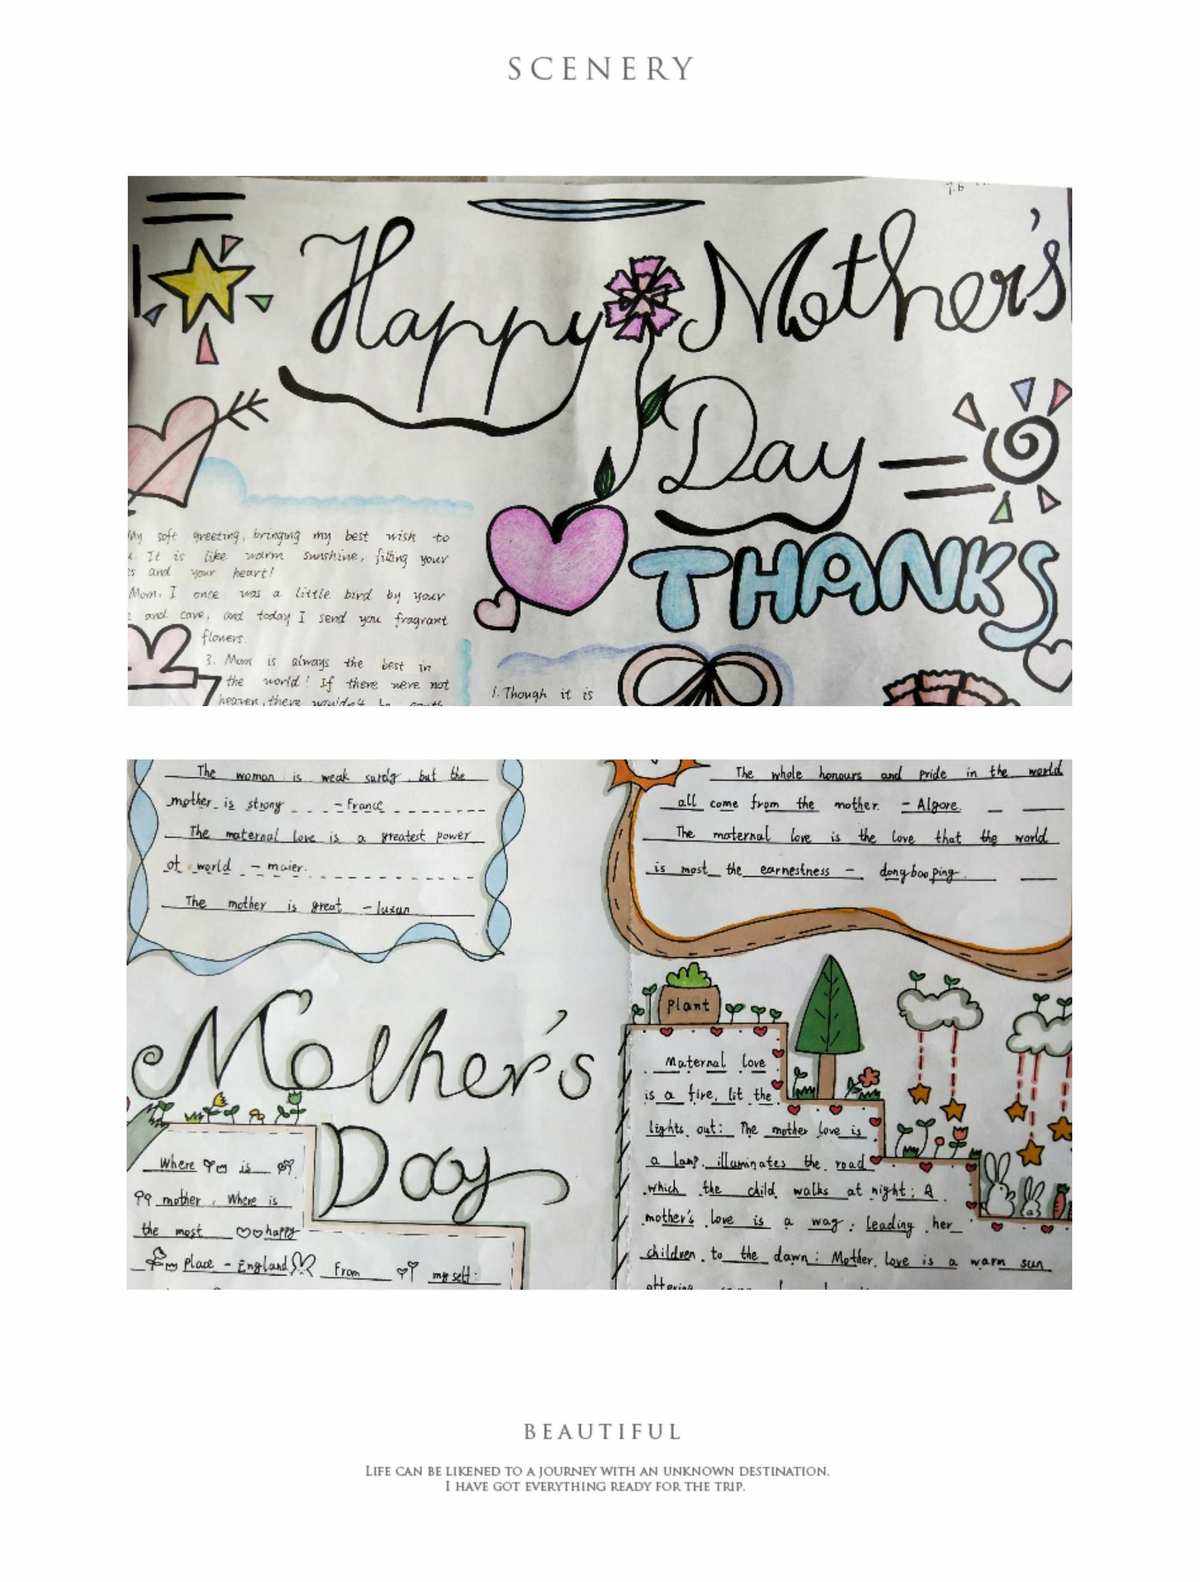 SCENERY
Happy Mother's
Day
THANKS
My soft greeting, bringing my best wish to
It is like warm sunshine, filling your
and your heart!
Mom. I once was a little bird by your
and care, and today I send you fragrant
flowers.
3. Mom is always the best in
the world! If there were not
heaven, there wouldn't be
1. Though it is
The woman is weak surely, but the
mother is strong - France
The maternal love is a greatest power
of world - maier.
The mother is great - luxun
The whole honours and pride in the world
all come from the mother. - Algore
The maternal love is the love that the world
is most the earnestness - dongbooping
Mother's
Day
Where is
mother, Where is
the most happy
place - England
From myself:
Plant
Maternal love
is a fire, lit the
lights out: The mother love is
a lamp, illuminates the road
which the child walks at night: A
mother's love is a way, leading her
children to the dawn: Mother love is a warm sun
BEAUTIFUL
LIFE CAN BE LIKENED TO A JOURNEY WITH AN UNKNOWN DESTINATION.
I HAVE GOT EVERYTHING READY FOR THE TRIP.